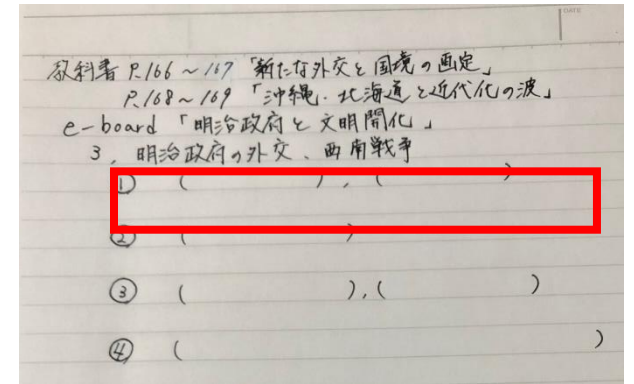 DATE
教科書 P.166～167「新たな外交と国境の画定」
P.168～169「沖縄・北海道と近代化の波」
e-board「明治政府と文明開化」
3, 明治政府の外交、西南戦争
① (　　　　), (　　　　)
② (　　　　)
③ (　　　　), (　　　　)
④ (　　　　)